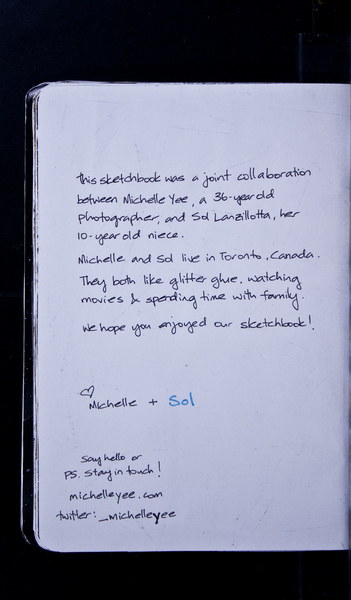 this sketchbook was a joint collaboration
between Michelle Yee, a 36-year old
photographer, and Sol Lanzillotta, her
10-year old niece.
Michelle and Sol live in Toronto, Canada.
They both like glitter glue, watching
movies & spending time with family.
We hope you enjoyed our sketchbook!
♡
Michelle + Sol
Say hello or
PS. Stay in touch!
michelleyee.com
twitter: _michelleyee